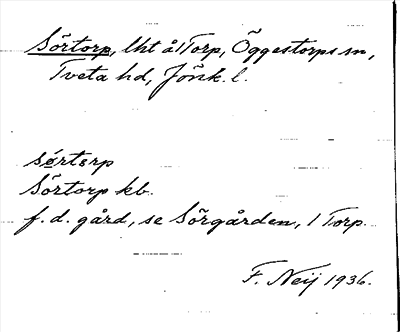 Sörtorp, lht å 1 Torp, Öggestorps sn,
Tveta hd, Jönk. l.
sørtɛrp
Sörtorp kb.
f. d. gård, se Sörgården, 1 Torp.
F. Neij 1936.